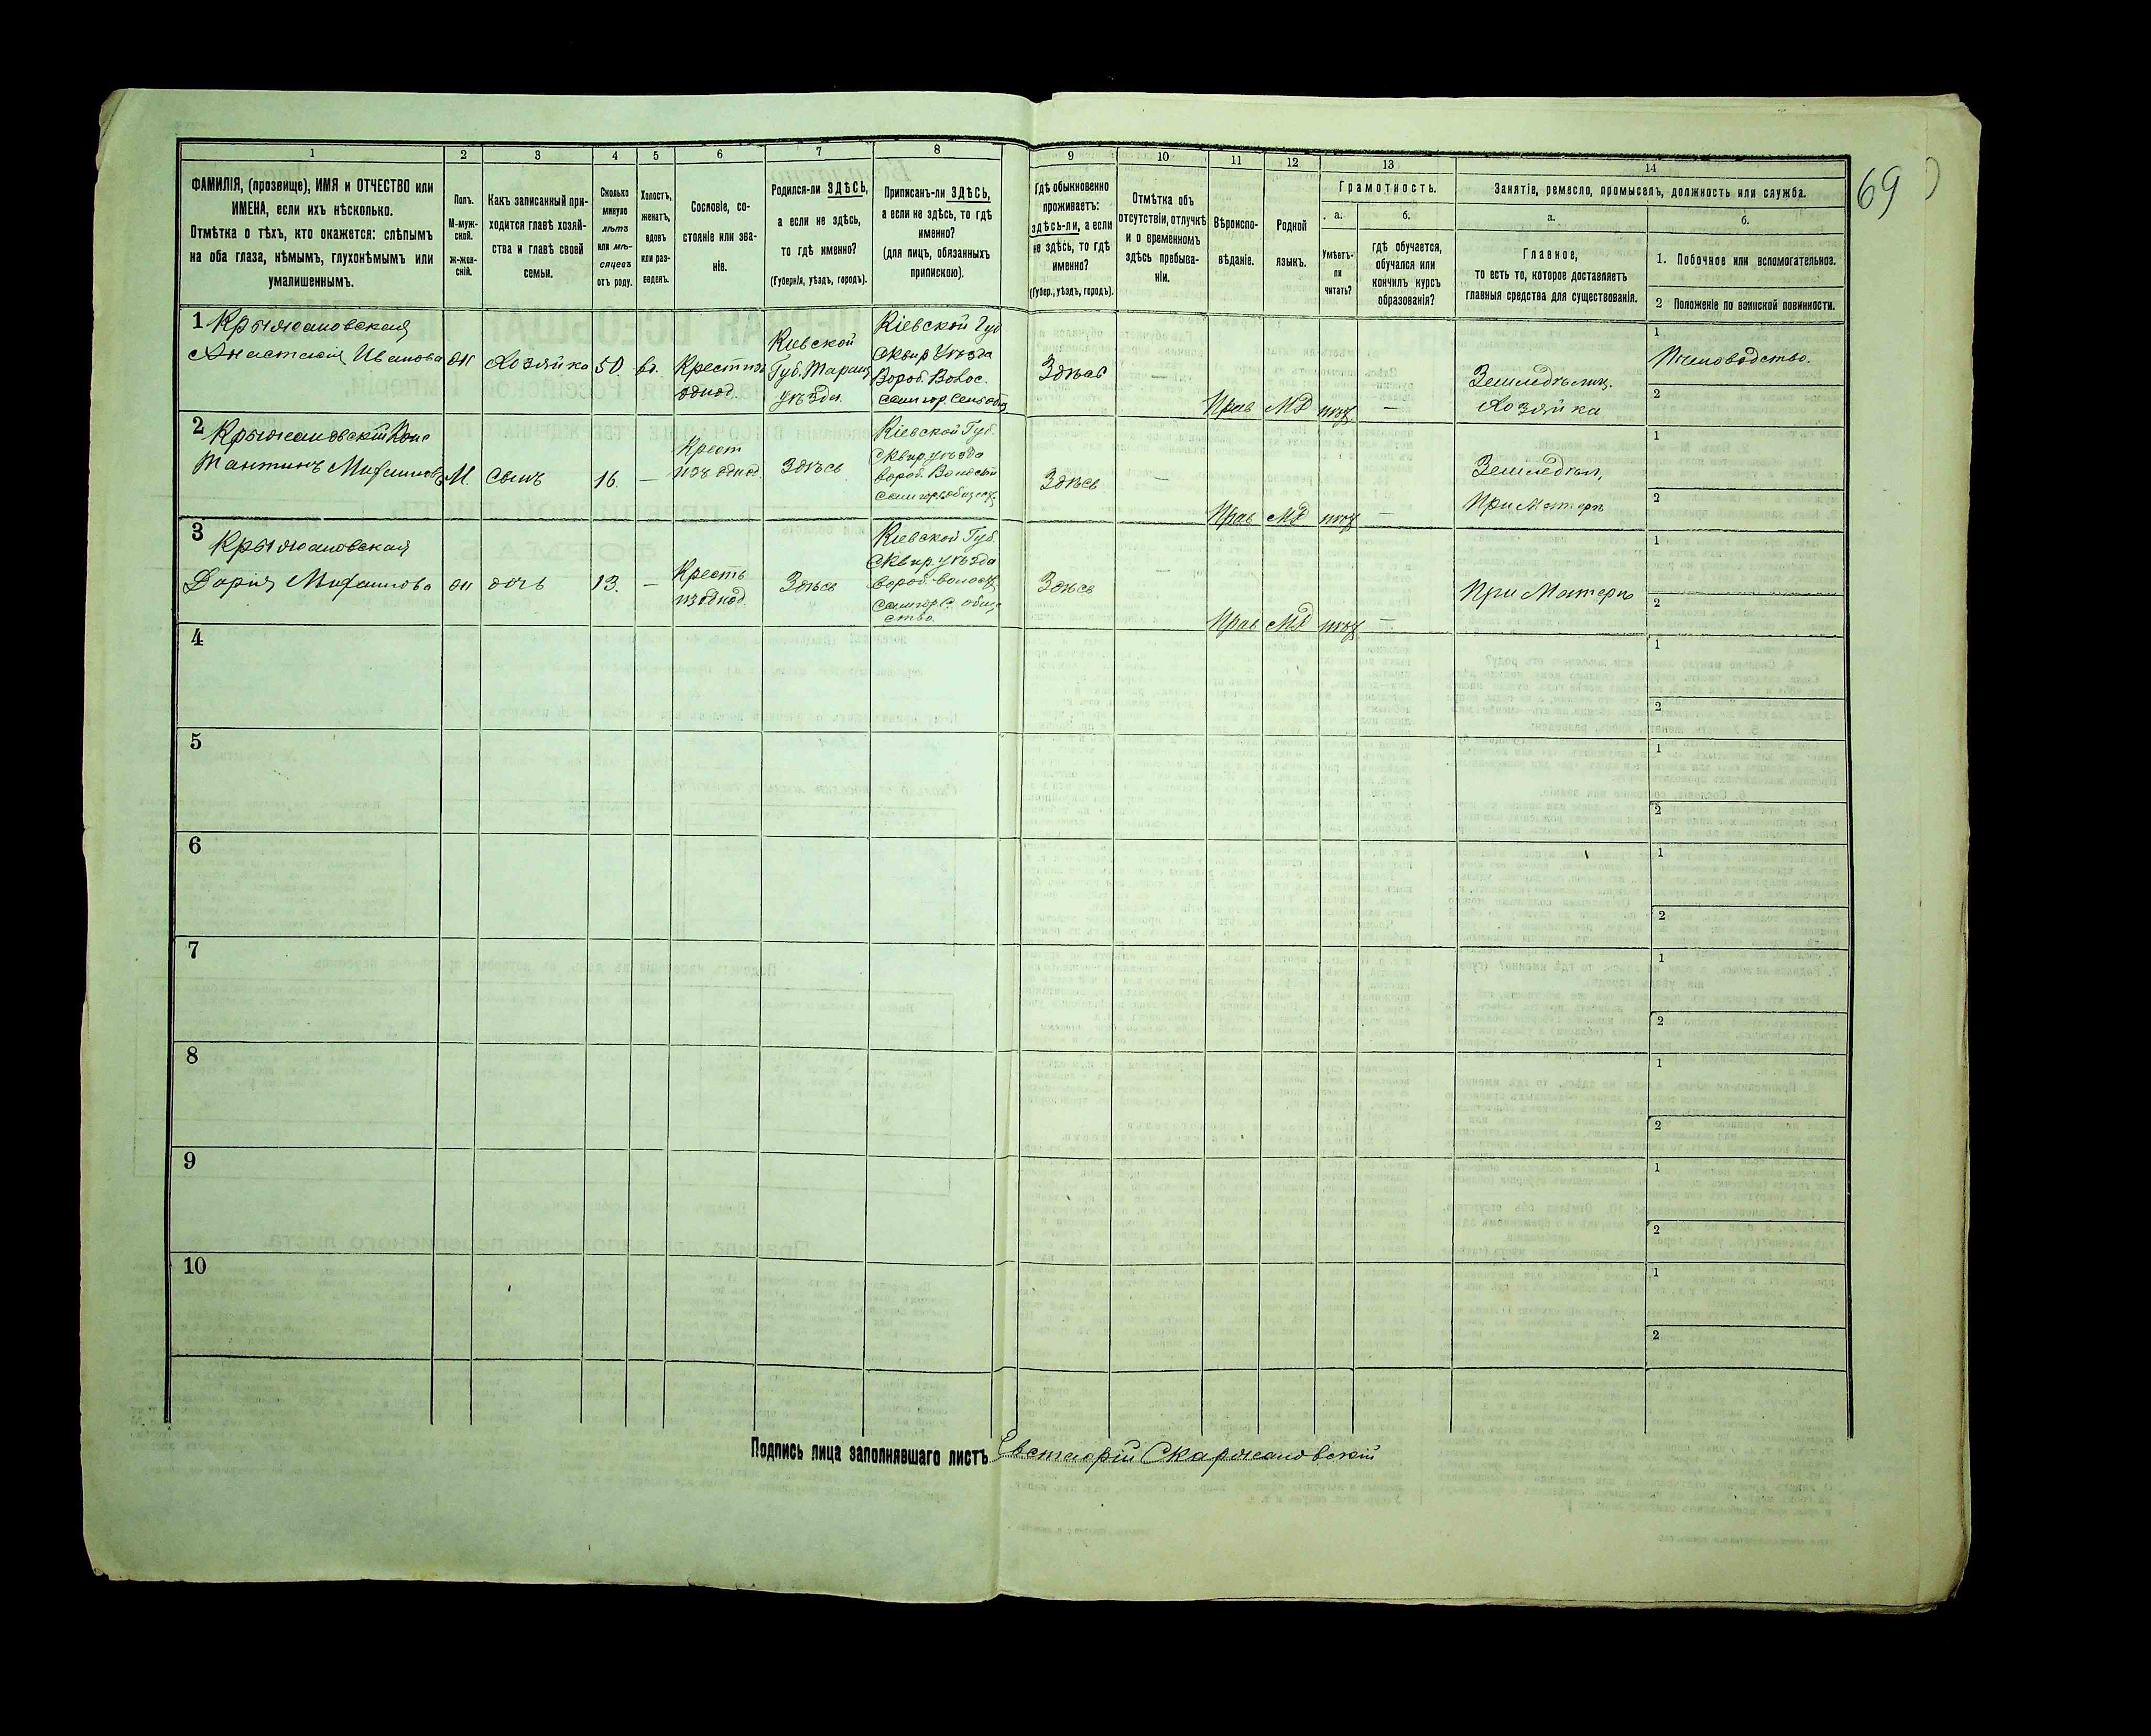 69
1 2 3 4 5 6 7 8 9 10 11 12 13 14
ФАМИЛІЯ, (прозвище), ИМЯ и ОТЧЕСТВО или
ИМЕНА, если ихъ нѣсколько.
Отмѣтка о тѣхъ, кто окажется: слѣпымъ
на оба глаза, нѣмымъ, глухонѣмымъ или
умалишеннымъ.
Полъ.
М-муж-
ской.
ж-жен-
скій.
Какъ записанный при-
ходится главѣ хозяй-
ства и главѣ своей
семьи.
Сколько
минуло
лѣтъ
или мѣ-
сяцевъ
отъ роду.
Холостъ,
женатъ,
вдовъ
или раз-
веденъ.
Сословіе, со-
стояніе или зва-
ніе.
Родился-ли ЗДѢСЬ,
а если не здѣсь,
то гдѣ именно?
(Губернія, уѣздъ, городъ).
Приписанъ-ли ЗДѢСЬ,
а если не здѣсь, то гдѣ
именно?
(для лицъ, обязанныхъ
припискою).
Гдѣ обыкновенно
проживаетъ:
здѣсь-ли, а если
не здѣсь, то гдѣ
именно?
(Губер., уѣздъ, городъ).
Отмѣтка объ
отсутствіи, отлучкѣ
и о временномъ
здѣсь пребыва-
ніи.
Вѣроиспо-
вѣданіе.
Родной
языкъ.
Грамотность.
а.
Умѣетъ-
ли
читать?
б.
гдѣ обучается,
обучался или
кончилъ курсъ
образованія?
Занятіе, ремесло, промыселъ, должность или служба.
а.
Главное,
то есть то, которое доставляетъ
главныя средства для существованія.
б.
1. Побочное или вспомогательное.
2 Положеніе по воинской повинности.
1 Крыжановская
Анастасія Иванова
ж
Хозяйка
50
вд.
Крест изъ
однод.
Кіевской
Губ. Таращ
уѣзда
Кіевской Губ
Сквир уѣзда
Вороб. Волос.
Здѣсь
—
Прав
МР
нѣт
—
Земледѣлиц.
Хозяйка
1
Пчеловодство.
2
2 Крыжановскій Конс
тантинъ Михаиловъ
М
Сынъ
16.
—
Крест
изъ однод.
Здѣсь
Кіевской Губ.
Сквир уѣзда
Вороб. Волости
Здѣсь
—
Прав
МР
нѣт
—
Земледѣл,
При Матери
1
2
3 Крыжановская
Дарія Михаилова
ж
дочь
13.
—
Кресть
из однод.
Здѣсь
Кіевской Губ.
Сквир. уѣзда
Вороб. волост
обще
ство.
Здѣсь
—
Прав
МР
нѣт
—
При Матери
1
2
4
1
2
5
1
2
6
1
2
7
1
2
8
1
2
9
1
2
10
1
2
Подпись лица заполнявшаго листъ Скаржановскій